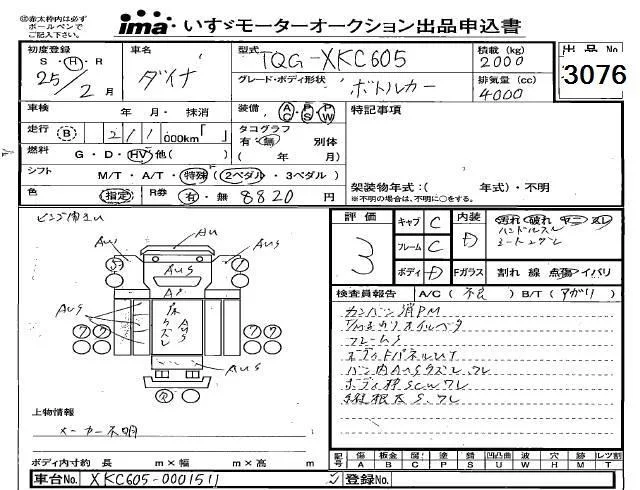 注赤太枠内は必ず
ボールペンで
ご記入下さい。
ima いすゞモーターオークション出品申込書
初度登録 車名 型式 TQG-XKC605 積載 (kg) 出品No.
S・H・R ダイナ グレード・ボディ形状 2000 3076
25/2月 ボトルカー 排気量 (cc)
4000
車検 年 月・抹消 装備 AC・PS・PW 特記事項
走行 B 211 000km「 」 タコグラフ
有・無 別体
燃料 G・D・HV・他( ) ( 年 月)
シフト M/T・A/T・特殊 F (2ペダル・3ペダル) 架装物年式:( 年式)・不明
色 指定 R券 有・無 8820 円 ※不明の場合は、不明に○をする。
ビンゴ同さい
評価 3
キャブ C 内装 D 汚れ 破れ ヤニ スレ
ハンドルスレ
シートコゲレ
フレーム C
ボディ D Fガラス 割れ 線 点傷 ワイパリ
AU
AU AU
AUS
AP
AUS 床 クズレ AUS AUS
AUS
検査員報告 A/C ( 不良 ) B/T ( アガリ )
カンバン消PM
T/Mまわりオイルベタ
フレームS
ボディ枠SCWワレ
上物情報
メーカー不明
ボディ内寸約 長 m×幅 m×高 m
記号 傷 A 板金 B 腐 C 塗 P 錆 S 凹凸曲 U 波 W 穴 H 跡 M レツ割 T
車台No. XKC605-0001511 登録No.